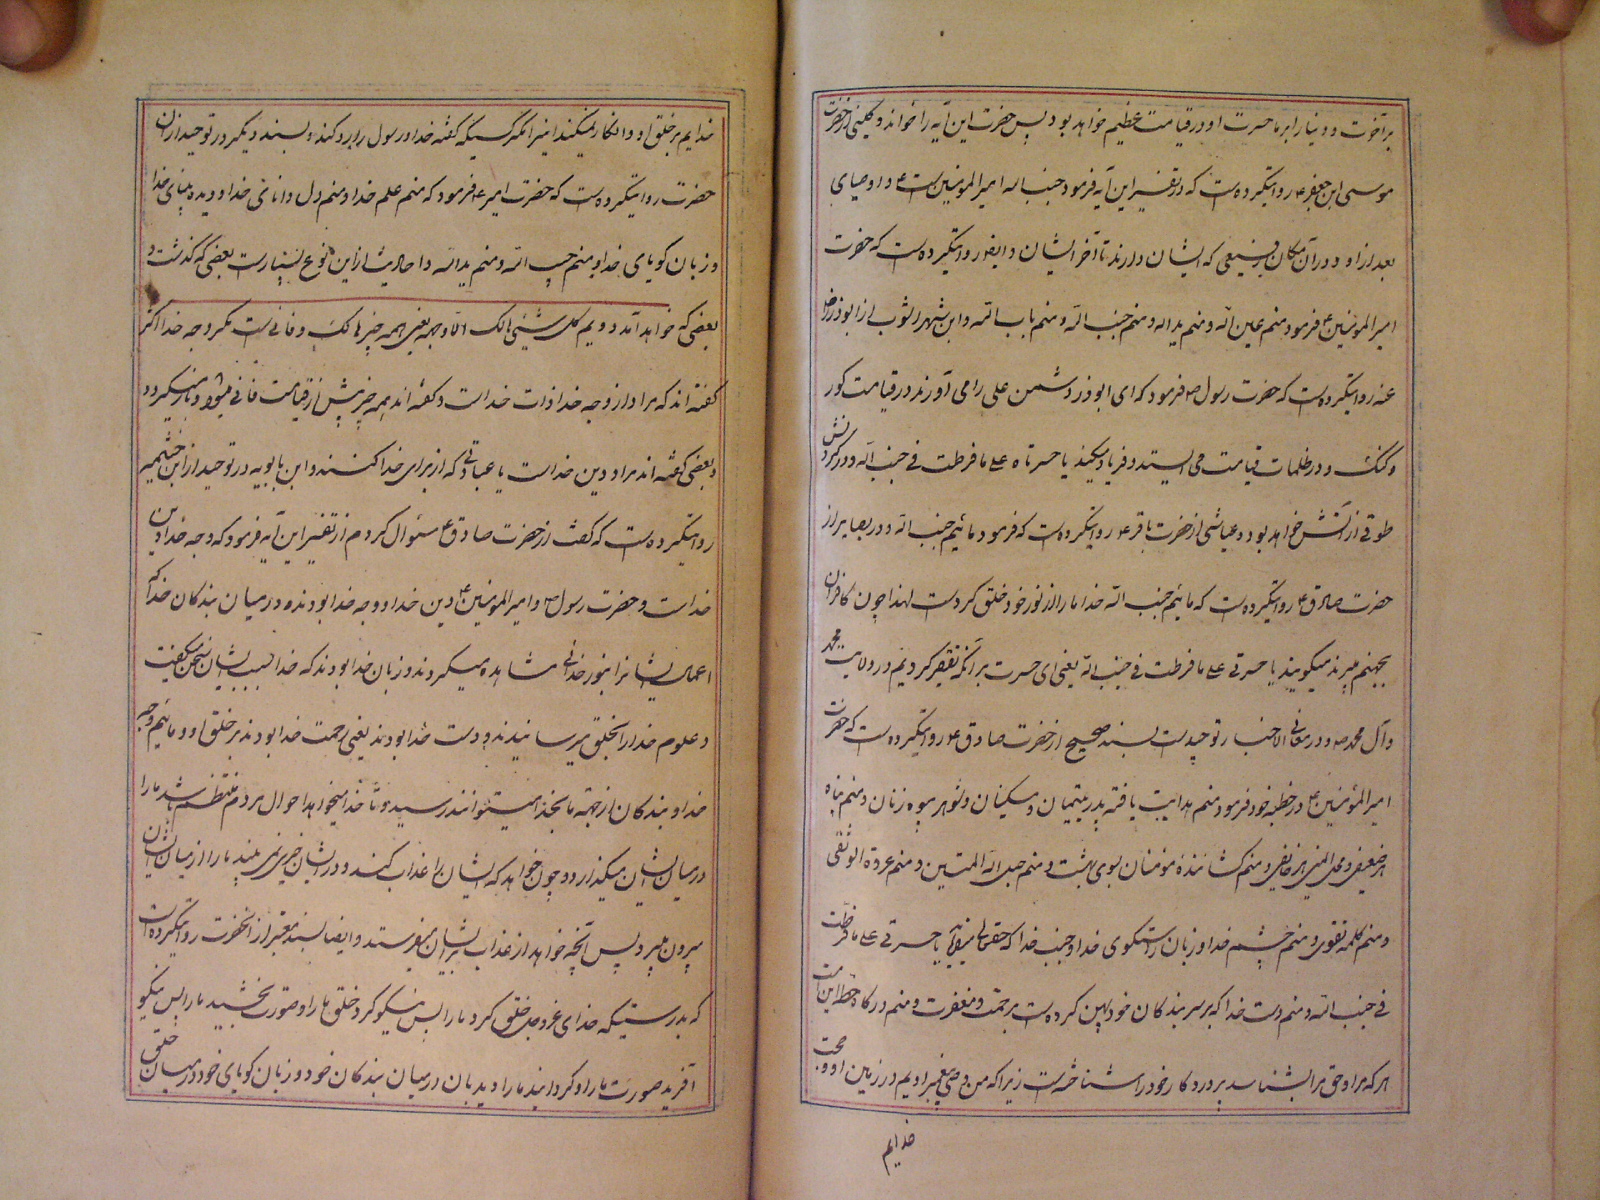 برآخوت و دنیا را برما حسرت او در قیامت عظیم خواهد بود پس حضرت این آیه را خواند و کلینی از حضرت
موسی ابن جعفر ع روایتکرده است که در تفسیر این آیه فرمود جنب اله امیر المؤمنین است ع و اوصیای
بعد از او در آن مکان رفیعی که ایشان دارند تا آخر ایشان و ایضا روایتکرده است که حضرت
امیر المؤمنین ع فرمود منم عین اله و منم ید اله و منم جنب اله و منم باب اله و ابن شهر اشوب از ابوذر رض
عنه روایتکرده است که حضرت رسول ص فرمود که ای ابوذر دشمن علی را می آورند در قیامت کور
و گنگ و در ظلمات قیامت می ایستد و فریاد میکند یا حسرتاه علی ما فرطت فی جنب اله و در گردنش
طوقی از آتش خواهد بود و عیاشی از حضرت باقر ع روایتکرده است که فرمود مائیم جنب اله و در بصایر از
حضرت صادق ع روایتکرده است که مائیم جنب اله خدا ما را از نور خود خلق کرده است لهذا چون کافران
بجهنم میبرند میگویند یا حسرتی علی ما فرطت فی جنب اله یعنی ای حسرت بر آنکه تقصیر کردیم در ولایت محمد
و آل محمد ص و در معانی الاخبار توحید است بسند صحیح از حضرت صادق ع روایتکرده است که حضرت
امیر المؤمنین ع در خطبه خود فرمود منم هدایت یافته پدر یتیمان و مسکینان و شوهر بیوه زنان و منم پناه
هر ضعیفی و محل ایمنی هر خایفی و منم کشاننده مومنان بسوی بهشت و منم حبل اله المتین و منم عروة الوثقی
و منم کلمه تقوی و منم چشم خدا و زبان راستگوی خدا و جنب خدا که حقتعالی میفرماید یا حسرتی علی ما فرطت
فی جنب اله و منم دست خدا که بر سر بندگان خود پهن کرده است برحمت و مغفرت و منم درگاه حطه این امت
هر که مرا و حق مرا بشناسد پروردگار خود را شناخته است زیرا که من وصی پیغمبر اویم در زمین او و حجت
خدایم
خدایم بر خلق او و انکار نمیکند اینرا مگر کسیکه گفته خدا و رسول را رد کند و بسند دیگر در توحید از آن
حضرت روایتکرده است که حضرت امیر ع فرمود که منم علم خدا و منم دل دانای خدا و دیده بینای خدا
و زبان گویای خدا و منم جنب اله و منم ید اله و احادیث از این نوع بسیار است بعضی که گذشت و
بعضی که خواهد آمد دویم کل شیئی هالک الا وجهه یعنی همه چیز هالک و فانی است مگر وجه خدا اکثر
گفته اند که مراد از وجه خدا ذات خداست و گفته اند همه چیز پیش از قیامت فانی میشود و باز میگردد
و بعضی گفته اند مراد دین خداست یا عباداتی که از برای خدا کنند و ابن بابویه در توحید از ابن خثیمه
روایتکرده است که گفت از حضرت صادق ع سئوال کردم از تفسیر این آیه فرمود که وجه خدا دین
خداست و حضرت رسول ص و امیر المؤمنین ع دین خدا و وجه خدا بودند و در میان بندگان خدا که
اعمال ایشانرا بنور خدائی مشاهده میکردند و زبان خدا بودند که خدا بسبب ایشان سخن میگفت
و علوم خدا را بخلق میرسانیدند و دست خدا بودند یعنی رحمت خدا بودند بر خلق او و مائیم وجه
خدا و بندگان از جهة ما بخدا میتوانند رسید و تا خدا میخواهد احوال مردم منتظم باشد ما را
در میان ایشان میگذارد و چون خواهد که ایشان را عذاب کند و در ایشان خیری نمی بیند ما را از میان ایشان
بیرون میبرد پس آنچه خواهد از عذاب بر ایشان میفرستد و ایضا بسند معتبر از آنحضرت روایتکرده است
که بدرستیکه خدای عز و جل خلق کرد ما را پس نیکو کرد خلق ما را و صورت بخشید ما را پس نیکو
آفرید صورت ما را و گردانید ما را دیدبان در میان بندگان خود و زبان گویای خود در میان خلق